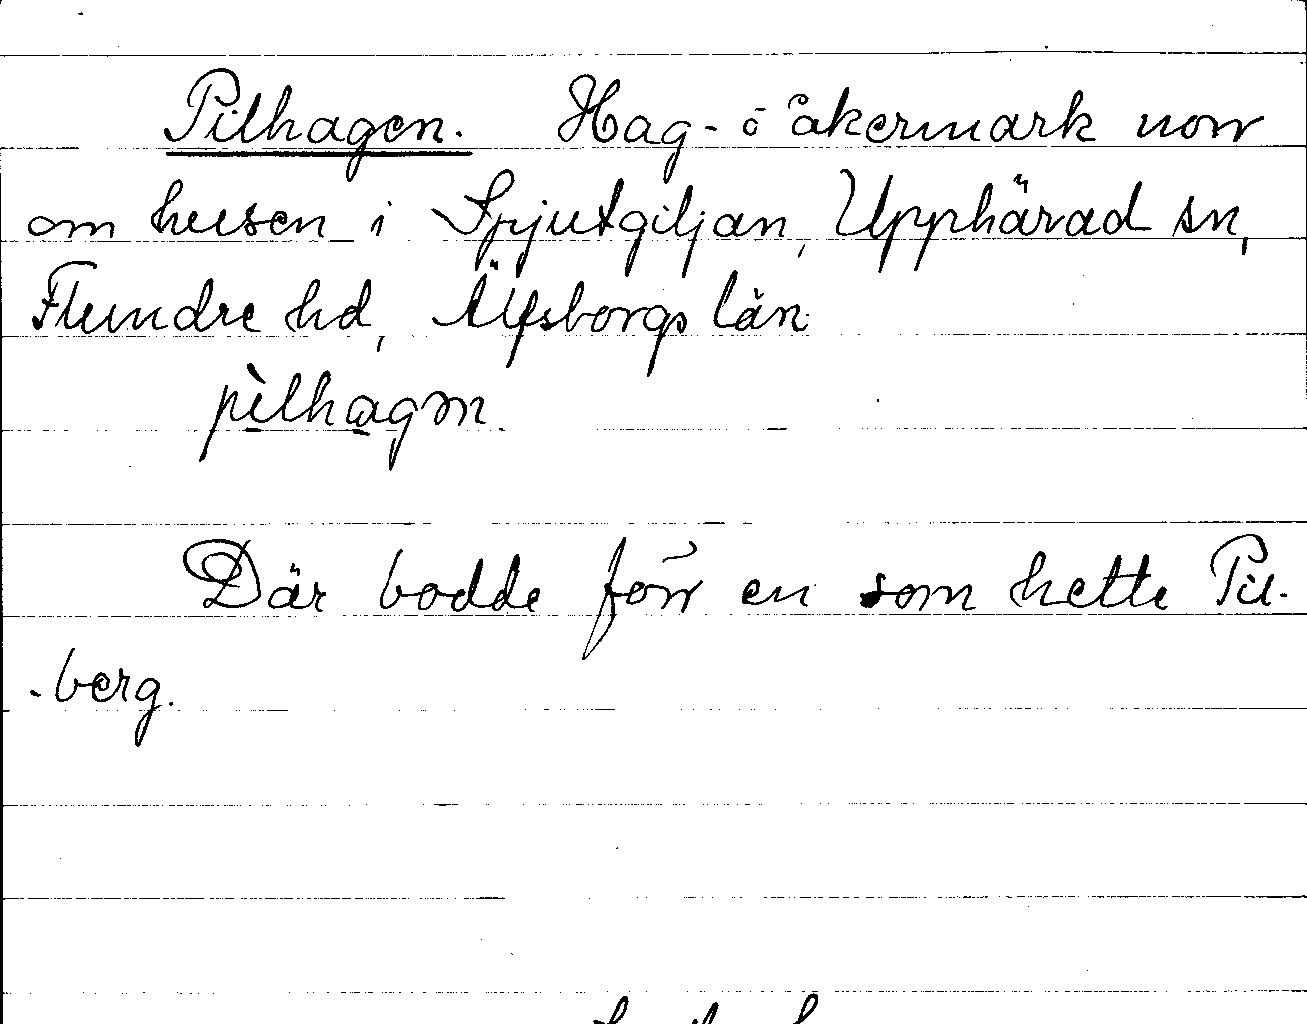 Pilhagen. Hag- o åkermark norr
om husen i Spjutgiljan, Upphärad sn,
Flundre hd, Älfsborgs län
pìlhagən
Där bodde förr en som hette Pil-
-berg.